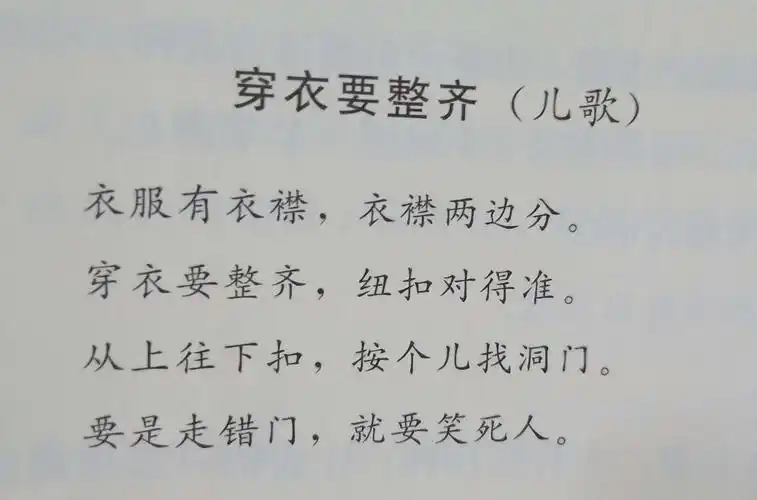 穿衣要整齐（儿歌）
衣服有衣襟，衣襟两边分。
穿衣要整齐，纽扣对得准。
从上往下扣，按个儿找洞门。
要是走错门，就要笑死人。